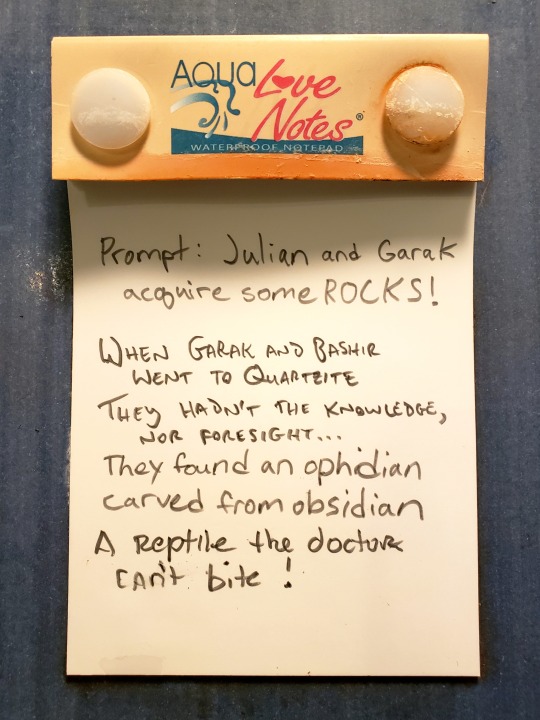 AQUA Love Notes®
WATERPROOF NOTEPAD
Prompt: Julian and Garak
acquire some ROCKS!
WHEN GARAK AND BASHIR
WENT TO QUARTZITE
THEY HADN'T THE KNOWLEDGE,
NOR FORESIGHT...
They found an ophidian
carved from obsidian
A Reptile the doctor
CAn't bite!